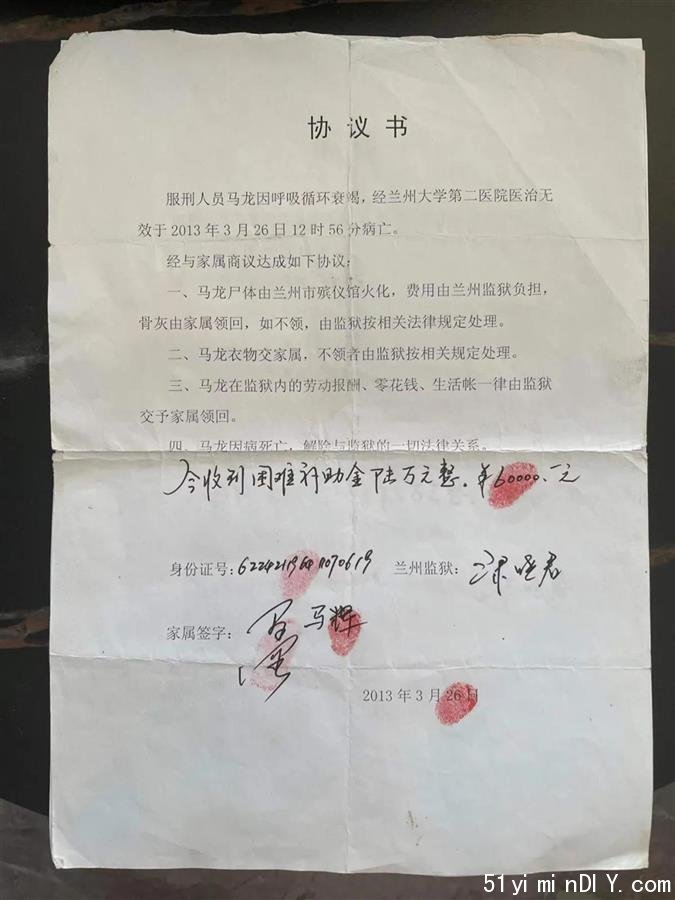 协议书
服刑人员马龙因呼吸循环衰竭，经兰州大学第二医院医治无
效于2013年3月26日12时56分病亡。
经与家属商议达成如下协议：
一、马龙尸体由兰州市殡仪馆火化，费用由兰州监狱负担，
骨灰由家属领回，如不领，由监狱按相关法律规定处理。
二、马龙衣物交家属，不领者由监狱按相关规定处理。
三、马龙在监狱内的劳动报酬、零花钱、生活帐一律由监狱
交予家属领回。
四、马龙因病死亡，解除与监狱的一切法律关系。
今收到困难补助金陆万元整。¥60000.元
身份证号：622421196411070619 兰州监狱：
家属签字： 马辉
2013年3月26日
51yiminDIY.com